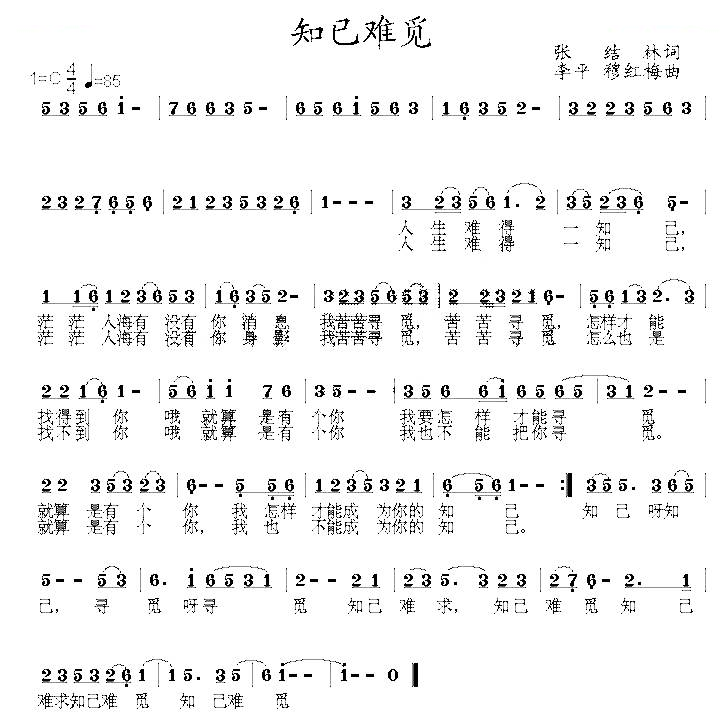 知已难觅
张 结 林词
李平 穆红梅曲
1=C 4/4 ♩=85
5 3 5 6 i - | 7 6 6 3 5 - | 6 5 6 i 5 6 3 | 1 6 3 5 2 - | 3 2 2 3 5 6 3
2 3 2 7 6 5 6 | 2 1 2 3 5 3 2 6 | 1 - - - | 3 2 3 5 6 1. 2 | 3 5 2 3 6 5 -
人 生 难 得 一 知 己,
人 生 难 得 一 知 己,
1 1 6 1 2 3 6 5 3 | 1 6 3 5 2 - | 3 2 3 5 6 5 3 | 2 2 3 1 2 - | 5 6 1 3 2. 3
茫 茫 人海有 没有 你 消 息 我苦苦寻 觅, 苦 苦 寻 觅, 怎样才 能
茫 茫 人海有 没有 你 身 影 我苦苦寻 觅, 苦 苦 寻 觅 怎么也 是
2 2 1 6 1 - | 5 6 i i 7 6 | 3 5 - - | 3 5 6 6 i 6 5 | 3 1 2 - -
找得到 你 哦 就算 是有 个你 我要怎 样 才能寻 觅
找不到 你 哦 就算 是有 个你 我也不 能 把你寻 觅。
2 2 3 5 3 2 3 | 6 - - 5 5 6 | 1 2 3 5 3 2 1 | 6 5 6 1 - - :| 3 5 5. 3 6 5
就算 是有 个 你 我 怎样 才能成 为你的 知 己 知 己 呀知
就算 是有 个 你, 我 也 不能成 为你的 知 己。
5 - - 5 3 | 6. i 6 5 3 1 | 2 - - 2 1 | 2 3 5. 2 1 | 2 7 6 - 2. 1
己, 寻 觅 呀寻 觅 知己 难 求, 知己 难 觅 知 己
2 3 5 3 2 6 1 | 1 5. 3 5 | 6 i - - | i - - 0
难求知己难 觅 知 己难 觅